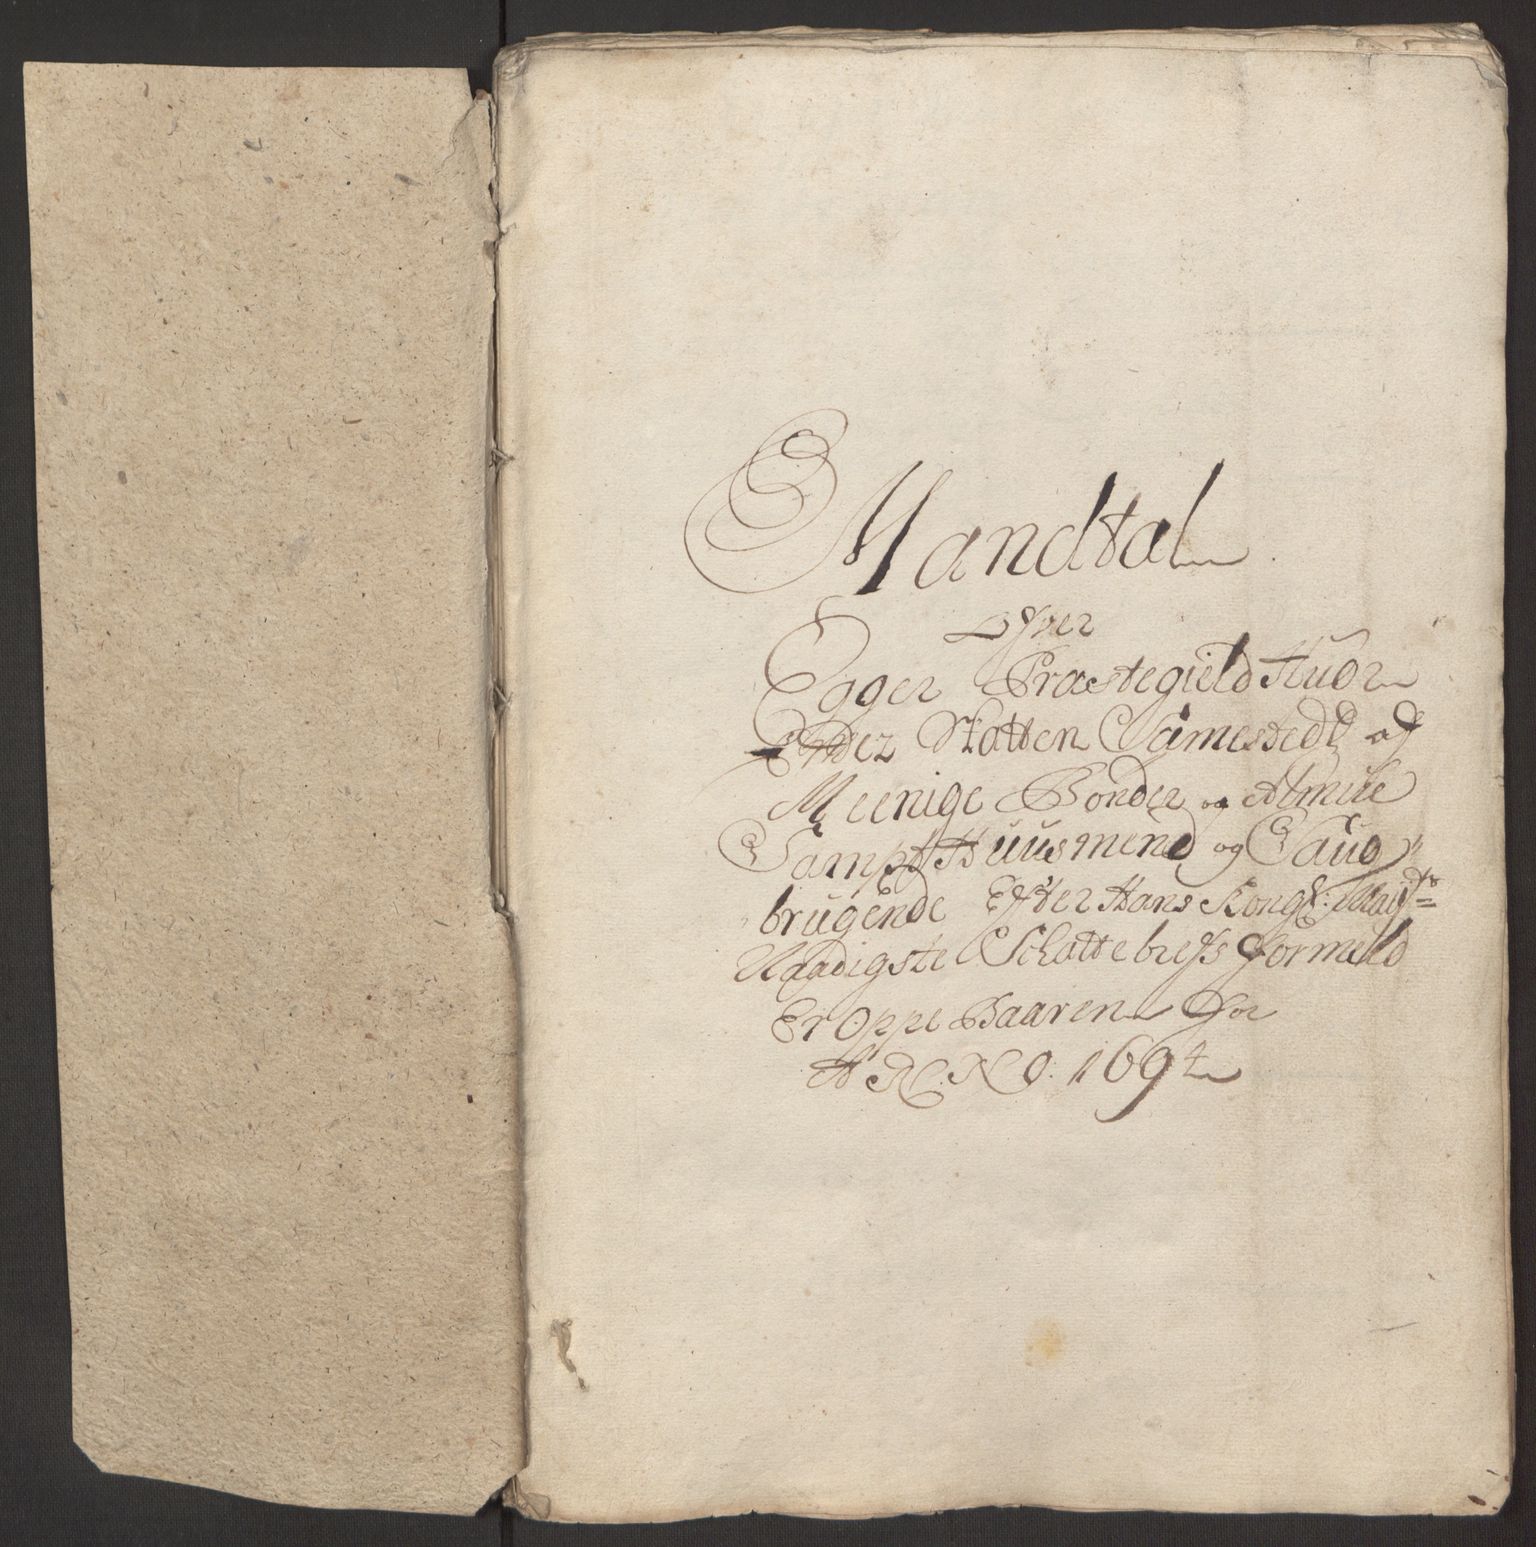 Mandtal
Ofver
Egger Præstegield Huor
Under Skatten Samestedtz af
Meenige Bønder og Almue
Sampt Huusmend og Saug
brugende Efter Hans Kongl: Mayts
Naadigste Schattebrefs Formeld
Er Oppe Baaren for
ANNO. 1694